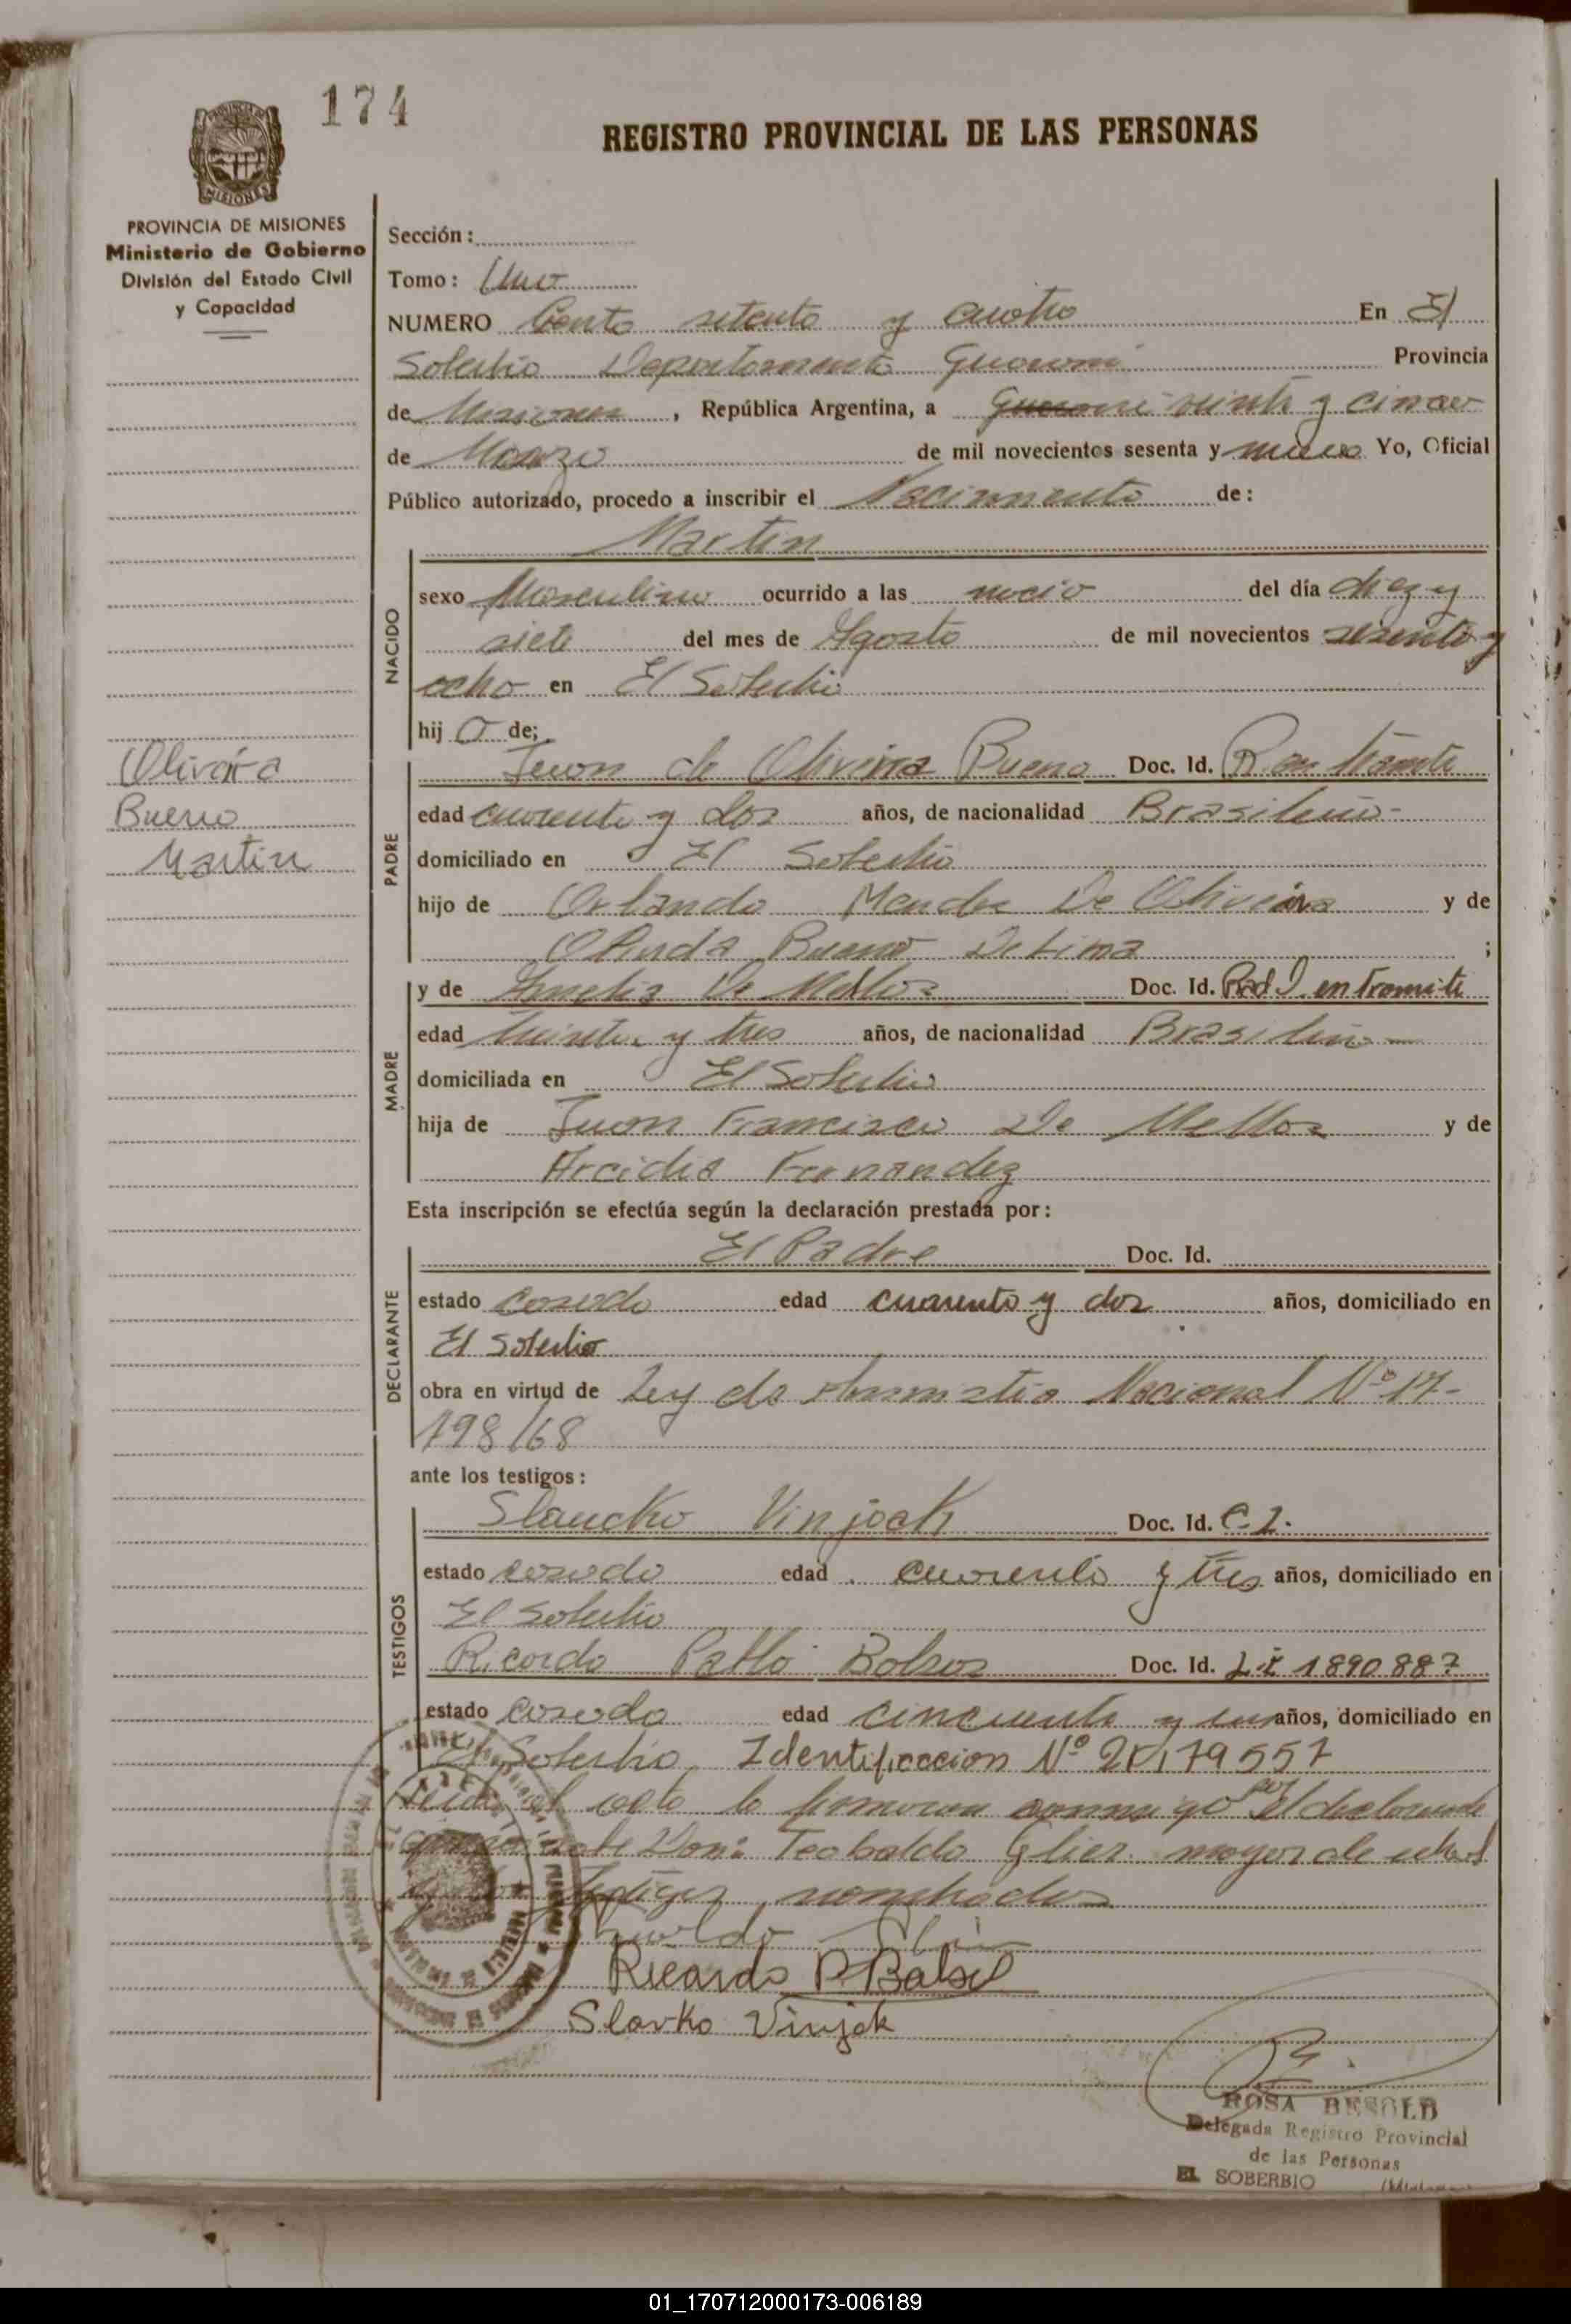 174
REGISTRO PROVINCIAL DE LAS PERSONAS
PROVINCIA DE MISIONES
Ministerio de Gobierno
División del Estado Civil
y Capacidad
Sección:
Tomo: Uno
NUMERO Ciento setenta y cuatro En El
Soberbio Departamento Guarani Provincia
de Misiones, República Argentina, a Guarani veinte y cinco
de Marzo de mil novecientos sesenta y nueve Yo, Oficial
Público autorizado, procedo a inscribir el Nacimiento de:
Martin
NACIDO
sexo Masculino ocurrido a las del día diez y
siete del mes de Agosto de mil novecientos sesenta y
ocho en El Soberbio
hij o de;
Olivera
Bueno
Martin
PADRE
Juan de Oliveira Bueno Doc. Id. en tramite
edad cuarenta y dos años, de nacionalidad Brasileño-
domiciliado en El Soberbio
hijo de Orlando Mendes De Oliveira y de
Olinda Bueno De Lima ;
MADRE
y de Amelia De Mellos Doc. Id. en tramite
edad treinta y tres años, de nacionalidad Brasileña
domiciliada en El Soberbio
hija de Juan Francisco De Mellos y de
Arcidia Fernandez
Esta inscripción se efectúa según la declaración prestada por:
DECLARANTE
El Padre Doc. Id.
estado casado edad cuarenta y dos años, domiciliado en
El Soberbio
obra en virtud de Ley de Amnistia Nacional Nº 17-
798/68
ante los testigos:
TESTIGOS
Slaucko Vinjock Doc. Id. C.I.
estado casado edad cuarenta y tres años, domiciliado en
El Soberbio
Ricardo Pablo Doc. Id. 1890887
estado casado edad cincuenta y un años, domiciliado en
El Soberbio Identificacion Nº
el acta la conmigo por el declarante
Don: Teobaldo Glier mayor de edad
y los testigos nombrados
Ricardo P Balsel
Slavko Vinjak
ROSA BESOLD
Delegada Registro Provincial
de las Personas
EL SOBERBIO
01_170712000173-006189